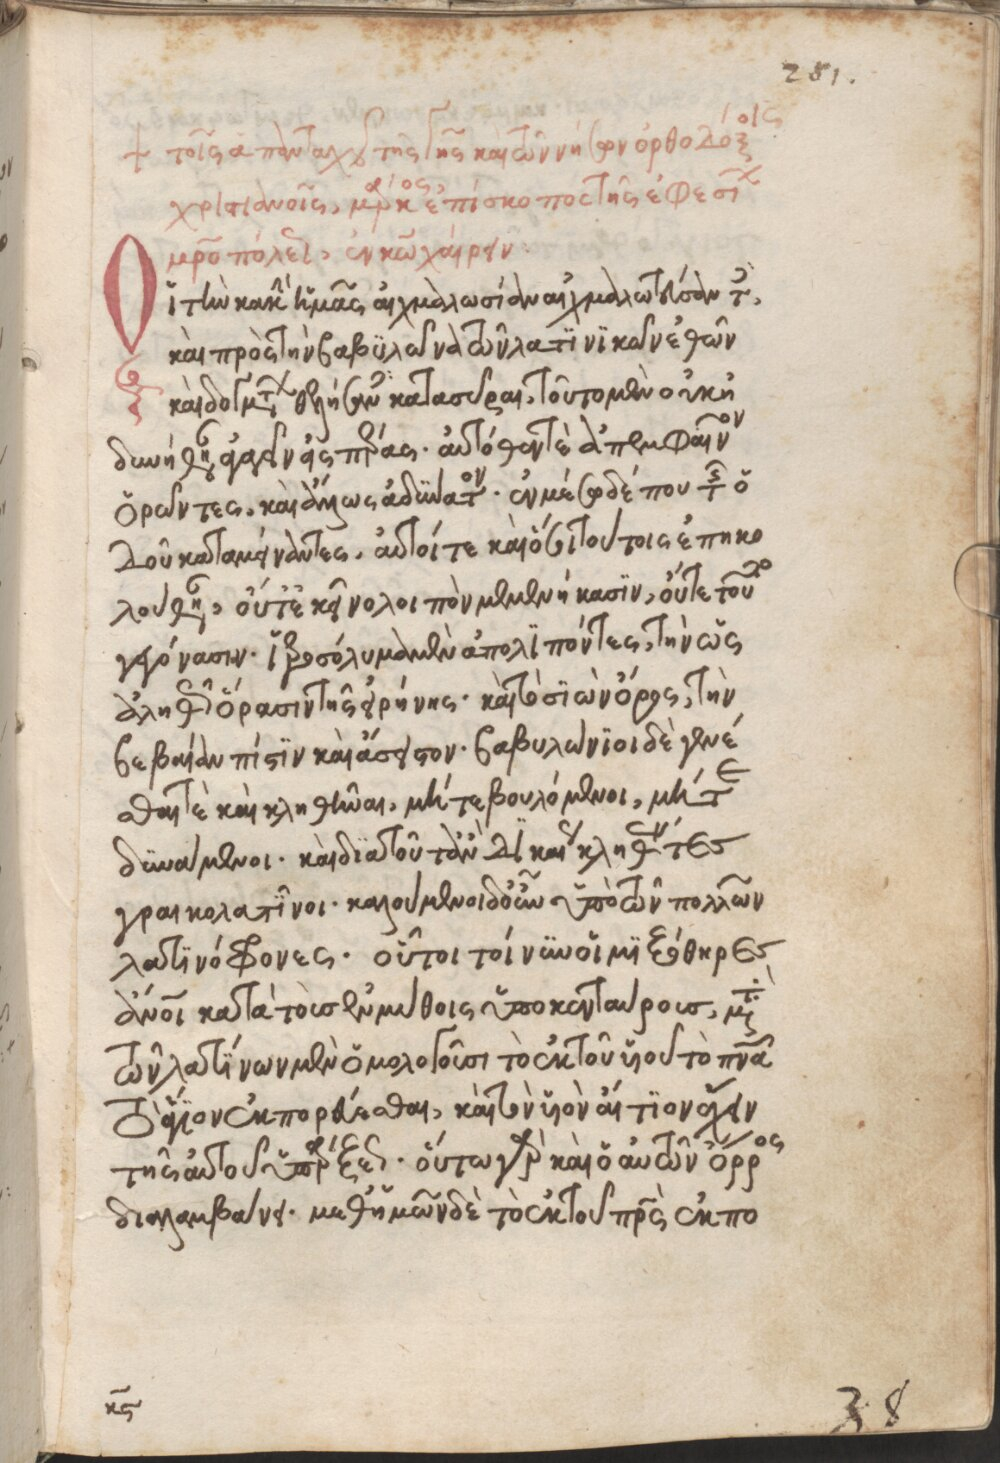 281.
+ τοῖς ἁπανταχοῦ τῆς γῆς καὶ τῶν νήσων ὀρθοδόξοις
χριστιανοῖς, μάρκος ἐπίσκοπος τῆς ἐφεσίων
μητροπόλεως, ἐν κω χαίρειν:
Οἱ τὴν κακὴν ἡμᾶς αἰχμαλωσίαν αἰχμαλωτεύσαντες,
καὶ πρὸς τὴν βαβυλῶνα τῶν λατίνικῶν ἐθῶν
καὶ δογμάτων θελήσαντες κατασύραι, τοῦτο μὲν οὐκ ἠ
δυνήθησαν ἀγαγεῖν εἰς πέρας· αὐτόθεν τὲ ἀπεμφαῖνον
ὁρῶντες, καὶ ἄλλως ἀδύνατον· ἐν μέσω δέ που τῆς ὁ
δοῦ καταμείναντες, αὐτοί τε καὶ ὅσοι τούτοις ἐπηκο
λούθησαν, οὔτε κεῖνο λοιπὸν μεμενήκασιν, οὔτε τοῦτο
γεγόνασιν· ἱεροσόλυμα μὲν ἀπολιπόντες, τὴν ὡς
ἀληθῶς ὅρασιν τῆς εἰρήνης· καὶ τὸ σιὼν ὄρος, τὴν
βεβαίαν πίστιν καὶ ἄσειστον· βαβυλώνιοι δὲ γενέ
σθαι τὲ καὶ κληθῆναι, μήτε βουλόμενοι, μήτε
δυνάμενοι· καὶ διατοῦτ ἂν δικαίως κληθέντες
γραικολατῖνοι· καλούμενοι δ οὖν ὑπὸ τῶν πολλῶν
λατινόφρονες· οὗτοι τοίνυν οἱ μιξόθηρες
ἄνθρωποι κατὰ τοὺς ἐν μύθοις ἱπποκενταύρους, μετὰ
τῶν λατίνων μὲν ὁμολογοῦσι τὸ ἐκ τοῦ υἱοῦ τὸ πνεῦμα
τὸ ἅγιον ἐκπορεύεσθαι, καὶ τὸν υἱὸν αἴτιον ἔχειν
τῆς αὐτοῦ ὑπάρξεως· οὕτω γὰρ καὶ ὁ αὐτῶν ὅρος
διαλαμβάνει· μεθ ἡμῶν δὲ τὸ ἐκ τοῦ πατρὸς ἐκπο
κς
38